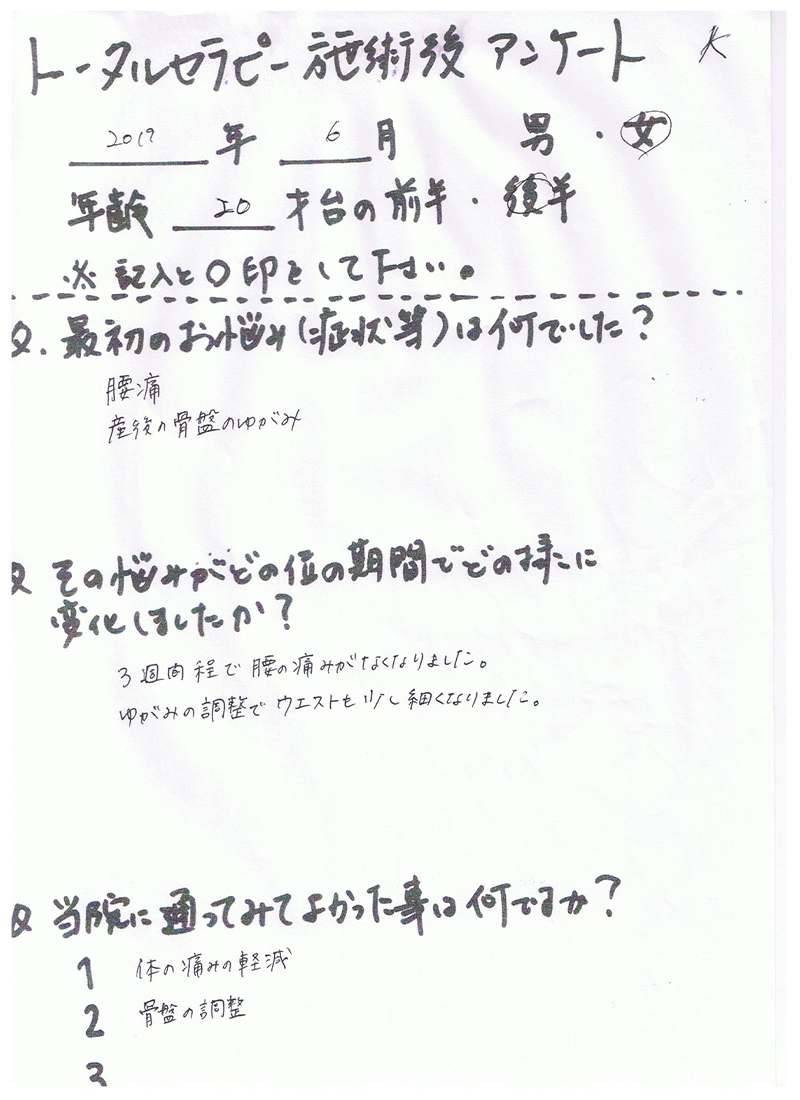 トータルセラピー施術後 アンケート K
2019 年 6 月 男・女
年齢 20 才台の前半・後半
※記入と○印をして下さい。
Q. 最初のお悩み(症状等)は何でした?
腰痛
産後の骨盤のゆがみ
Q その悩みがどの位の期間でどの様に
変化しましたか?
3週間程で腰の痛みがなくなりました。
ゆがみの調整でウエストも少し細くなりました。
Q 当院に通ってみてよかった事は何ですか?
1 体の痛みの軽減
2 骨盤の調整
3